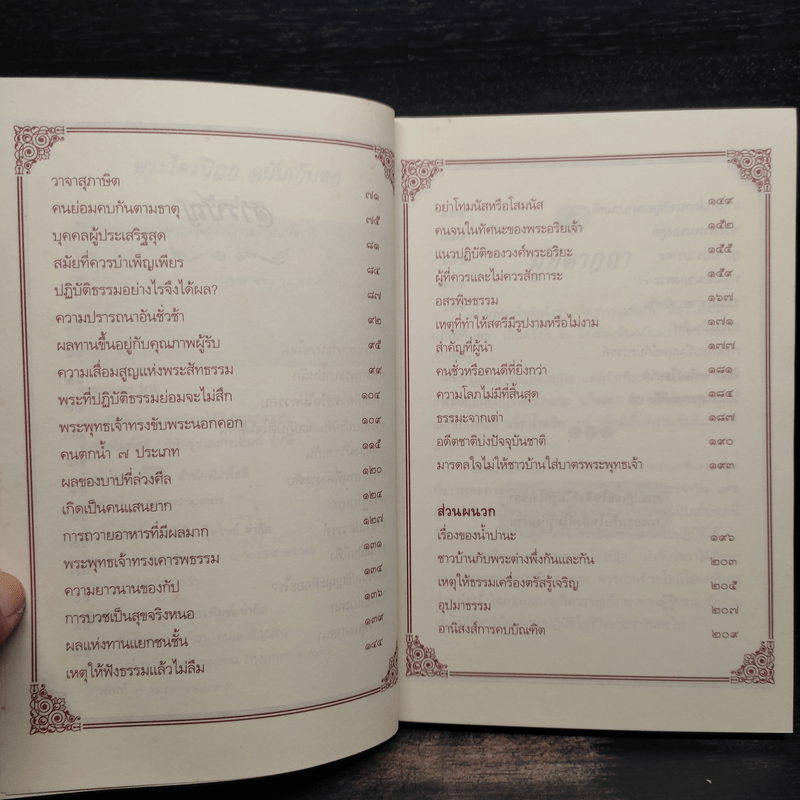 วาจาสุภาษิต ๗๑
คนย่อมคบกันตามธาตุ ๗๕
บุคคลผู้ประเสริฐสุด ๘๑
สมัยที่ควรบำเพ็ญเพียร ๘๔
ปฏิบัติธรรมอย่างไรจึงได้ผล? ๘๗
ความปรารถนาอันชั่วช้า ๙๒
ผลทานขึ้นอยู่กับคุณภาพผู้รับ ๙๕
ความเสื่อมสูญแห่งพระสัทธรรม ๙๙
พระที่ปฏิบัติธรรมย่อมจะไม่สึก ๑๐๔
พระพุทธเจ้าทรงขับพระนอกคอก ๑๐๙
คนตกน้ำ ๗ ประเภท ๑๑๕
ผลของบาปที่ล่วงศีล ๑๒๐
เกิดเป็นคนแสนยาก ๑๒๔
การถวายอาหารที่มีผลมาก ๑๒๗
พระพุทธเจ้าทรงเคารพธรรม ๑๓๑
ความยาวนานของกัป ๑๓๔
การบวชเป็นสุขจริงหนอ ๑๓๖
ผลแห่งทานแยกชนชั้น ๑๓๙
เหตุให้ฟังธรรมแล้วไม่ลืม ๑๔๔
อย่าโทมนัสหรือโสมนัส ๑๔๙
คนจนในทัศนะของพระอริยเจ้า ๑๕๒
แนวปฏิบัติของวงศ์พระอริยะ ๑๕๕
ผู้ที่ควรและไม่ควรสักการะ ๑๕๙
อสรพิษธรรม ๑๖๗
เหตุที่ทำให้สตรีมีรูปงามหรือไม่งาม ๑๗๑
สำคัญที่ผู้นำ ๑๗๗
คนชั่วหรือคนดีที่ยิ่งกว่า ๑๘๑
ความโลภไม่มีที่สิ้นสุด ๑๘๔
ธรรมะจากเต่า ๑๘๗
อดีตชาติบ่งปัจจุบันชาติ ๑๙๐
มารดลใจไม่ให้ชาวบ้านใส่บาตรพระพุทธเจ้า ๑๙๓
ส่วนผนวก
เรื่องของน้ำปานะ ๑๙๖
ชาวบ้านกับพระต่างพึ่งกันและกัน ๒๐๓
เหตุให้ธรรมเครื่องตรัสรู้เจริญ ๒๐๕
อุปมาธรรม ๒๐๗
อานิสงส์การคบบัณฑิต ๒๐๙